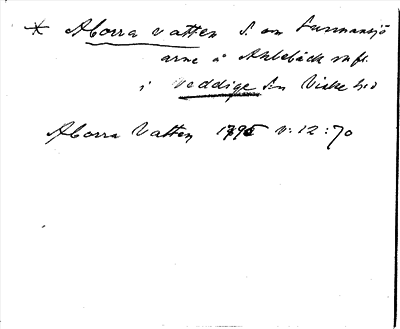 * Aborra vatten S. om Surmansjö
arne å Ahlebäck
i Veddige Sn Viske hd
Aborra Vatten 1795 V: 12: 70